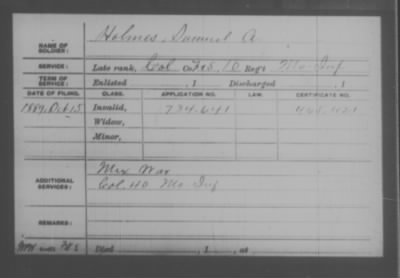 Holmes, Samuel A.
NAME OF
SOLDIER:
SERVICE:
Late rank, Col Co. F&S, 10 Reg't Mo Inf
TERM OF
SERVICE:
Enlisted , 1 Discharged , 1
DATE OF FILING. CLASS. APPLICATION NO. LAW. CERTIFICATE NO.
1889, Oct 15 Invalid, 734.641
Widow,
Minor,
ADDITIONAL
SERVICES:
Mex War
Col. 40 Mo Inf
REMARKS:
Died , 1 , at